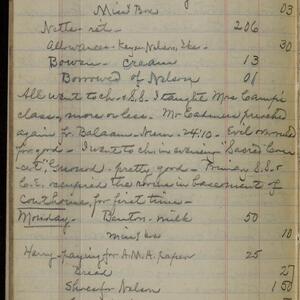 Miss Box 03
Netta - ret. 206
Allowances - Nelson, Ike - 30
Bowen - cream 13
Borrowed of Nelson 01
All went to ch. & S.S. I taught Mrs Camp's
class, more or less. Mr Cadmus preached
again for Balaam - Num. 24:10 - Evil
for good - I went to ch. in evening "Sacred Con-
cert," - pretty good - Primary S.S. &
C.E. occupied the rooms in basement of
courthouse for first time -
Monday - Benton - milk 50
10
Henry - paying for A.M.A. paper 25
Bread 25
Shoes for Nelson 1 50